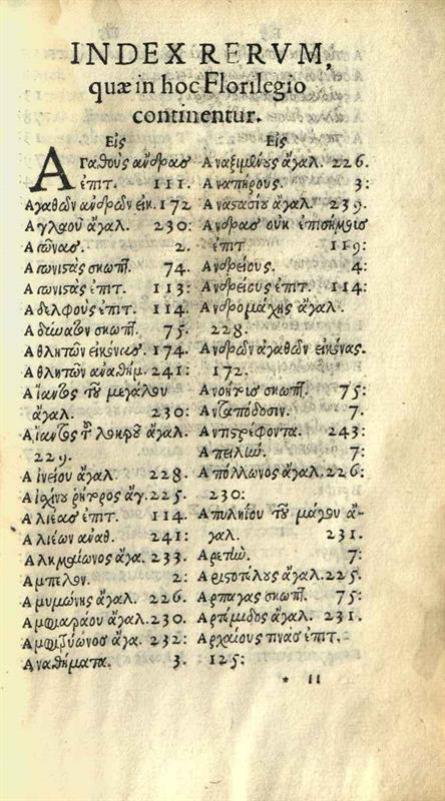 INDEX RERVM,
quæ in hoc Florilegio
continentur.
Εἰς
ΑΓαθοὺς ἄνδρας
ἐπιτ. 111.
Αγαθῶν ἀνδρῶν εἰκ. 172
Αγλαοῦ ἄγαλ. 230:
Αγῶνας. 2.
Αγωνιστὰς σκωπ. 74.
Αγωνιστὰς ἐπιτ. 113:
Αδελφοὺς ἐπιτ. 114.
Αδύνατον σκωπ. 75.
Αθλητῶν εἰκόνας. 174.
Αθλητῶν ἀναθημ. 241:
Αἴαντος τοῦ μεγάλου
ἄγαλ. 230:
Αἴαντος τοῦ λοκροῦ ἄγαλ.
229.
Αἰνείου ἄγαλ. 228.
Αἰσχίνου ῥήτορος ἄγ. 225.
Αλιέας ἐπιτ. 114.
Αλιέων ἀναθ. 241:
Αλκμαίωνος ἄγα. 233.
Αμπελον. 2:
Αμυμώνης ἄγαλ. 226.
Αμφιαράου ἄγαλ. 230.
Αμφιτρύωνος ἄγα. 232:
Αναθήματα. 3.
Εἰς
Αναξιμένους ἄγαλ. 226.
Αναπήρους. 3:
Αναστασίου ἄγαλ. 239.
Ανδρας οὐκ ἐπισήμους
ἐπιτ 119:
Ανδρείους. 4:
Ανδρείους ἐπιτ. 114:
Ανδρομάχης ἄγαλ.
228.
Ανδρῶν ἀγαθῶν εἰκόνας.
172.
Ανοήτους σκωπ. 75:
Ανταπόδοσιν. 7.
Αντιστρέφοντα. 243:
Απειλὼ. 7:
Απόλλωνος ἄγαλ. 226:
230:
Απυληίου τοῦ μάγου ἄ-
γαλ. 231.
Αρετὼ. 7:
Αριστοτέλους ἄγαλ. 225.
Αρπαγας σκωπ. 75:
Αρτέμιδος ἄγαλ. 231.
Αρχαίους τινὰς ἐπιτ.
125:
* 11